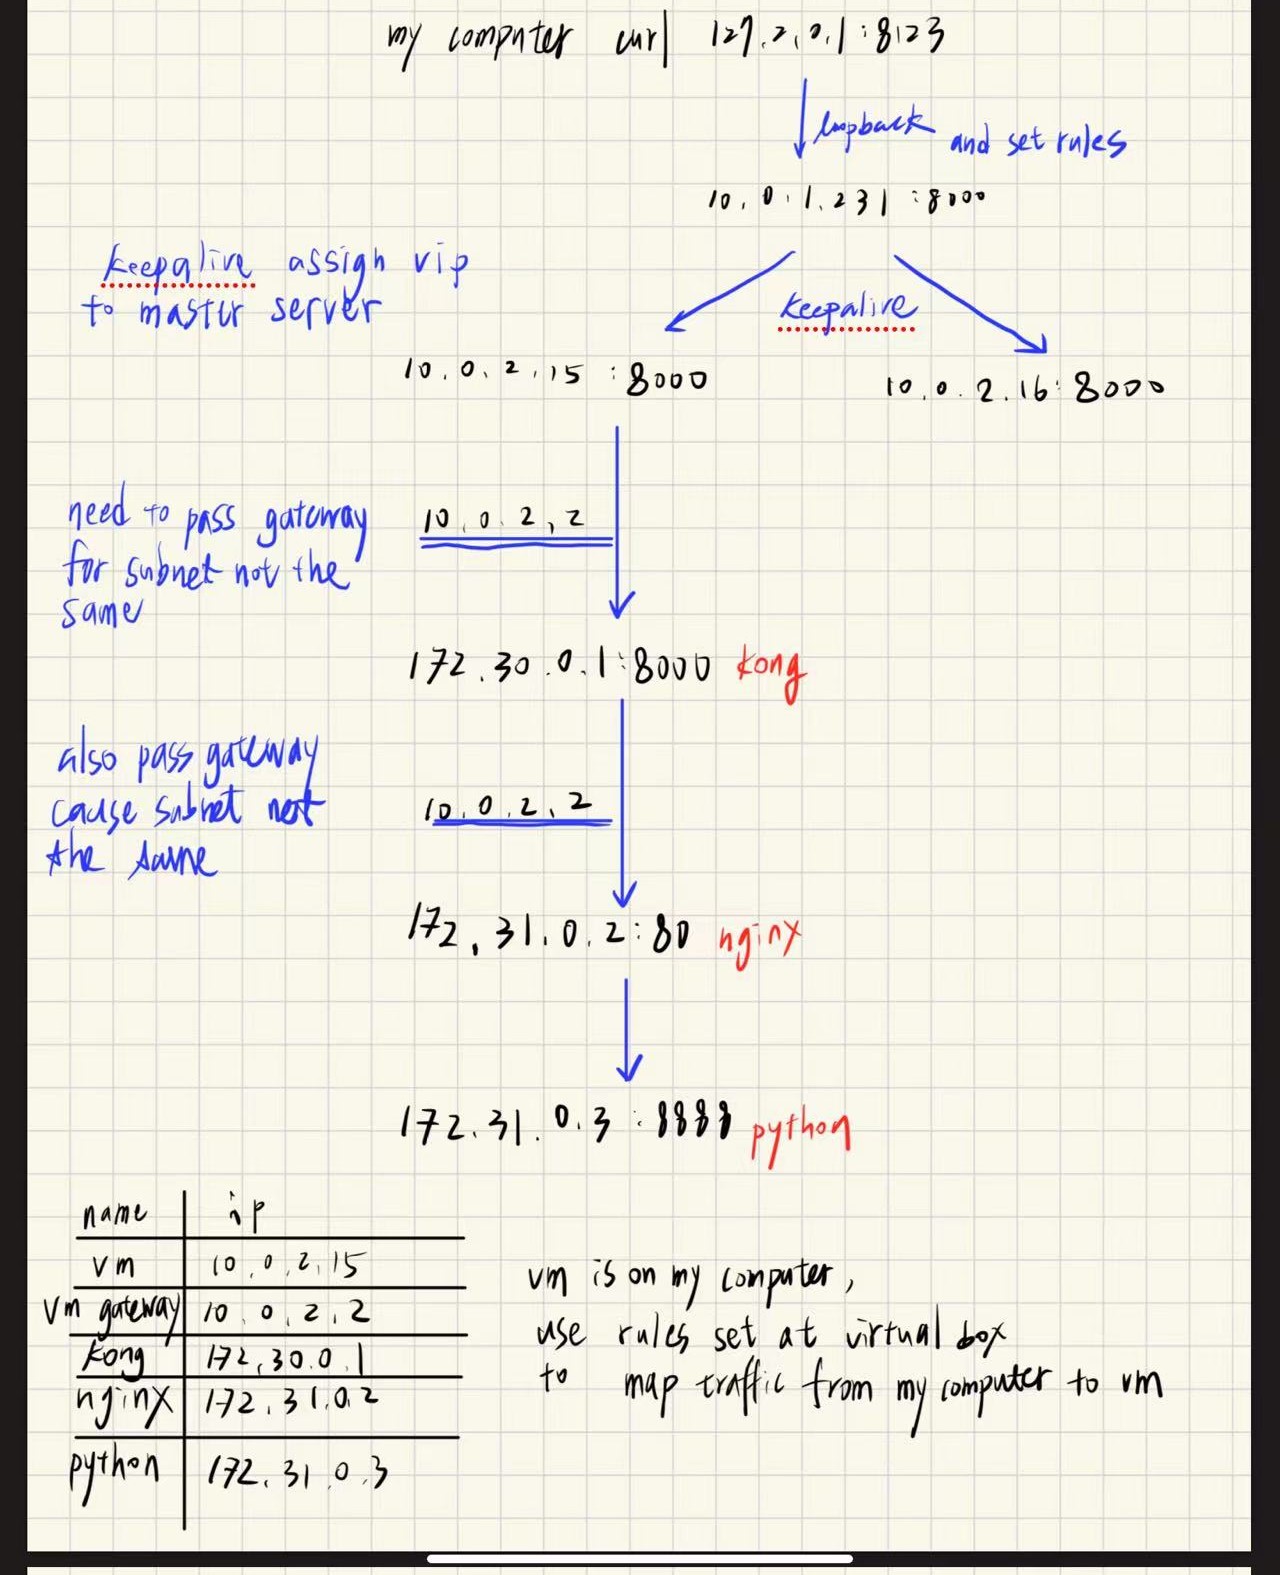 my computer curl 127.2.0.1:8123
loopback and set rules
10.0.1.231:8000
keepalive assign vip
to master server
keepalive
10.0.2.15:8000
10.0.2.16:8000
need to pass gateway
for subnet not the
same
10.0.2.2
172.30.0.1:8000 kong
also pass gateway
cause subnet not
the same
10.0.2.2
172.31.0.2:80 nginx
172.31.0.3:8888 python
name ip
vm 10.0.2.15
vm gateway 10.0.2.2
kong 172.30.0.1
nginx 172.31.0.2
python 172.31.0.3
vm is on my computer,
use rules set at virtual box
to map traffic from my computer to vm